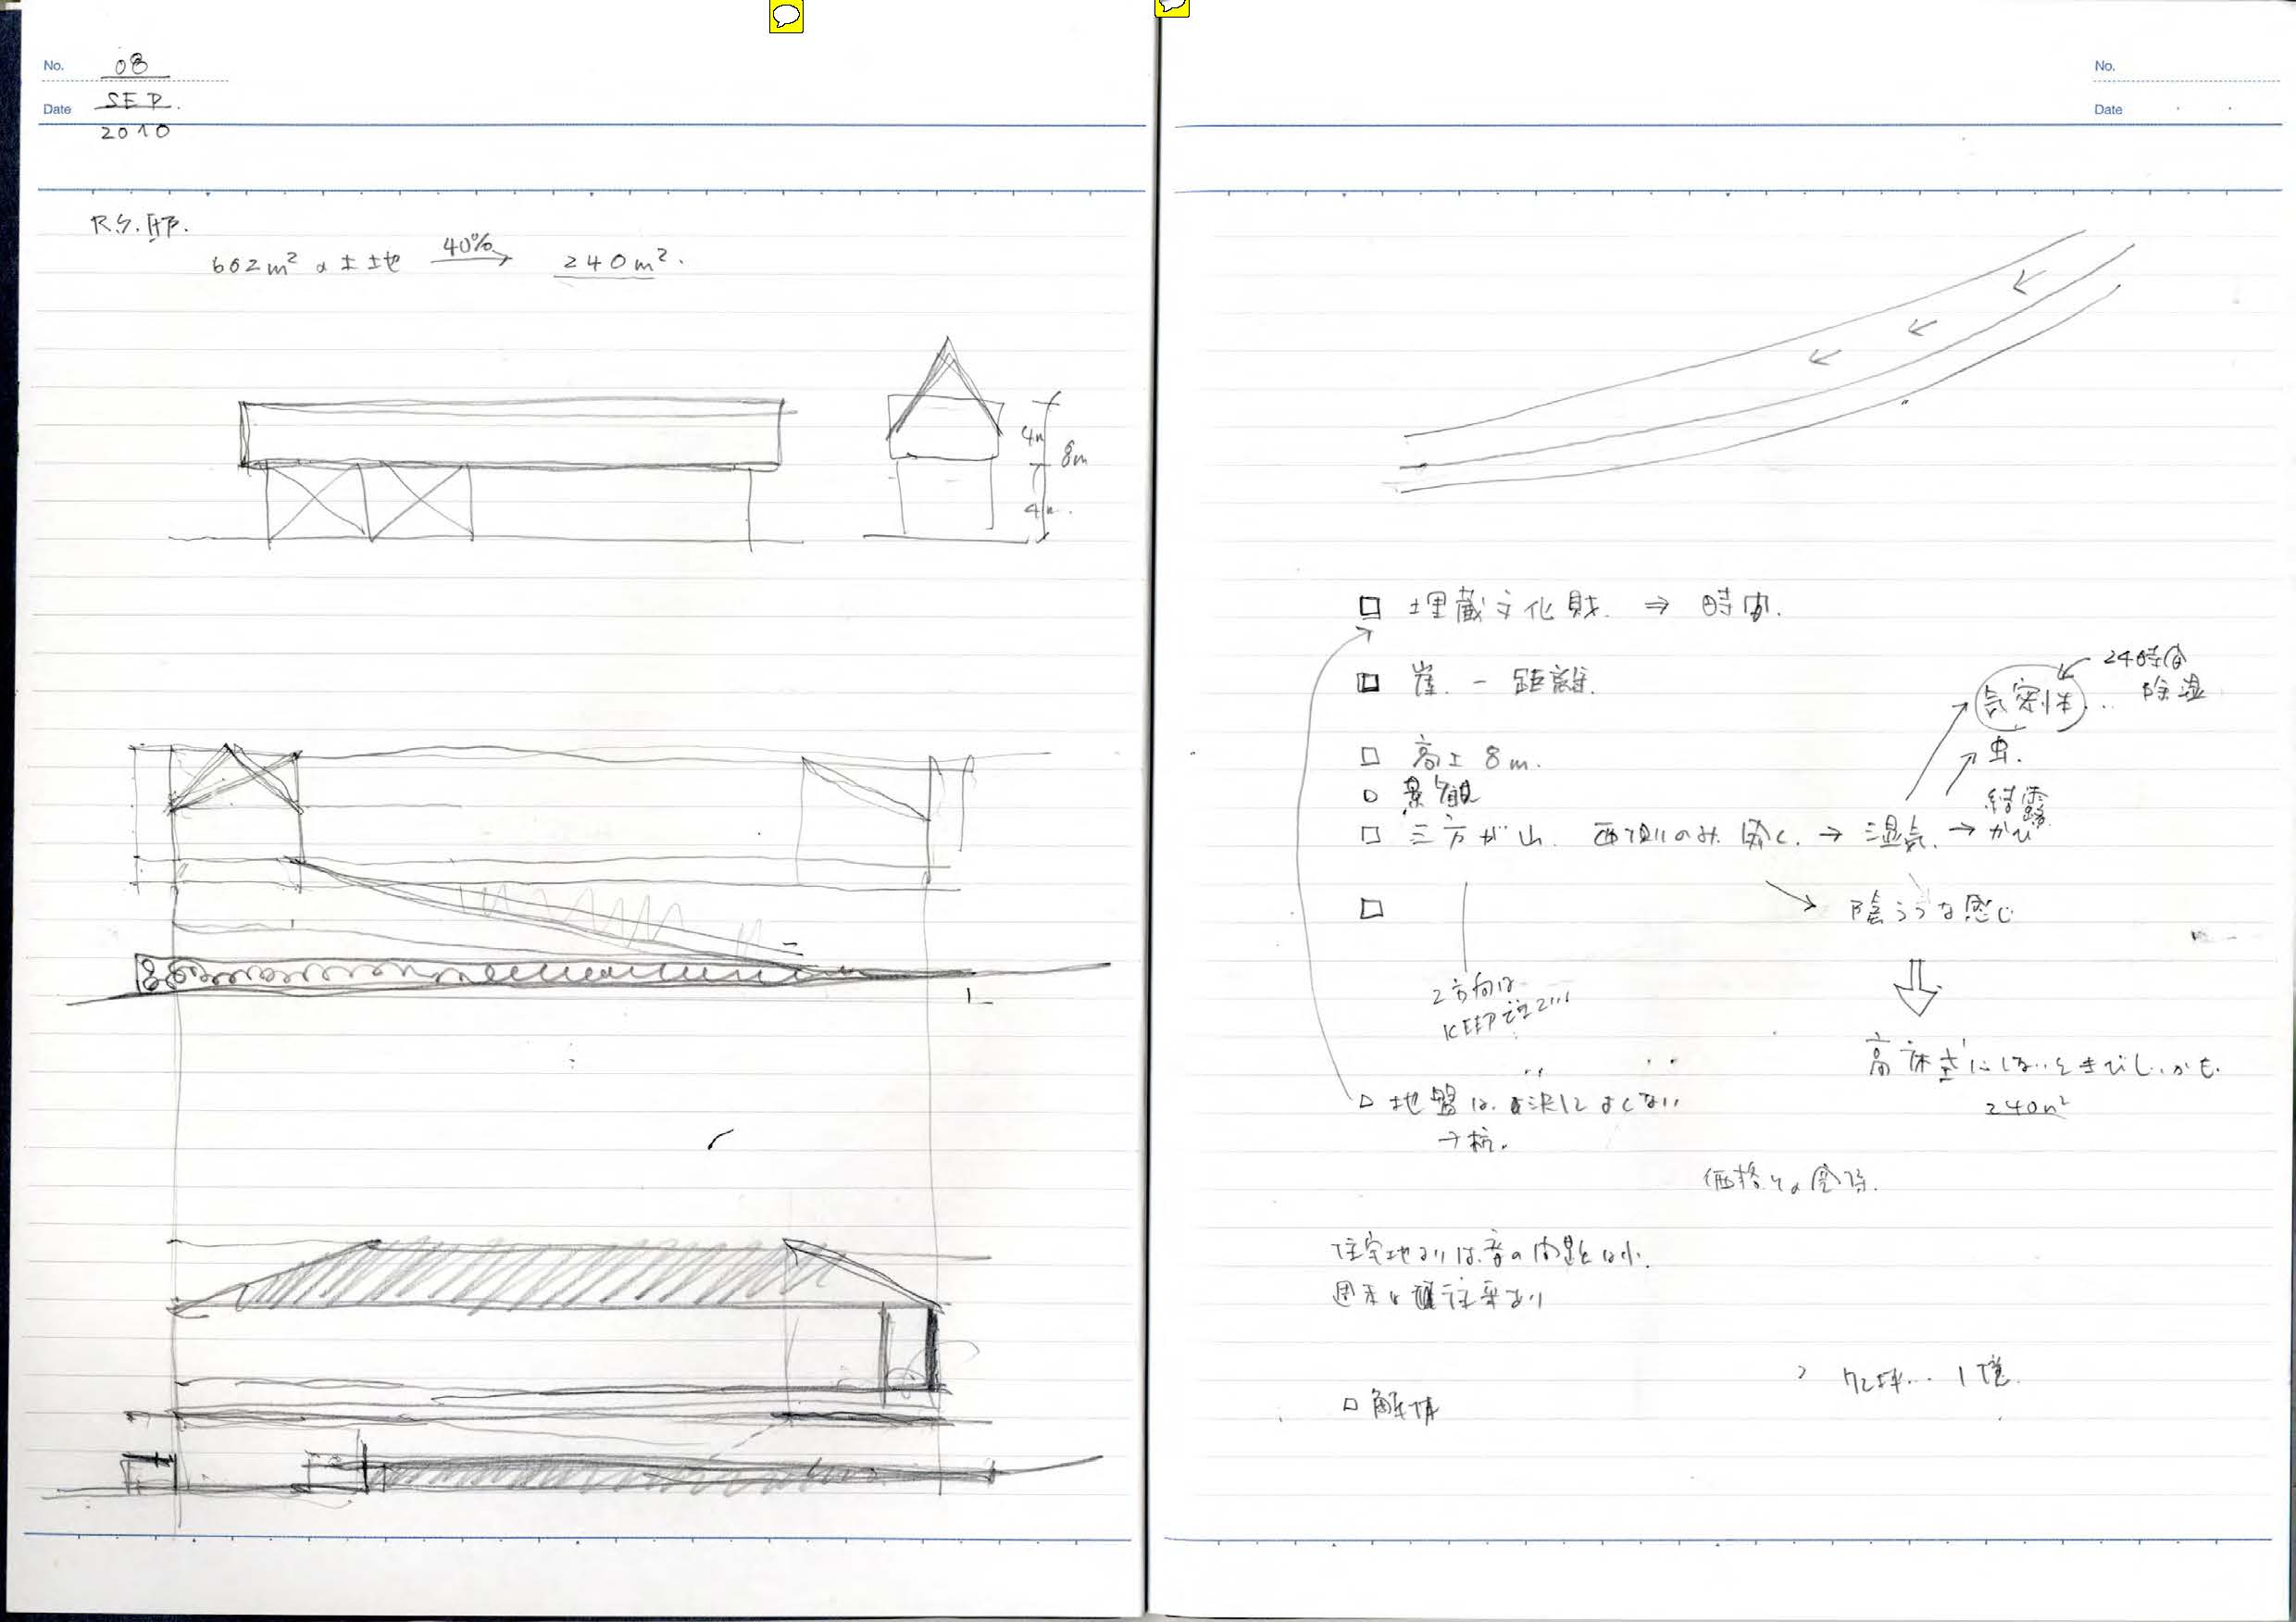 No. 08
Date SEP.
2010
R.S.邸.
602m² の土地 40% 240m².
4m
8m
4m.
No.
Date
□ 埋蔵文化財. ⇒ 時間.
24時間
□ 崖. - 距離.
気密性... 除湿
虫.
□ 高さ 8m.
○ 景観
結露
□ 三方が山. 西側のみ開く. → 湿気. → かび
□
陰うつな感じ
2方向は
KEEP
高床式にしないときびしいかも.
240m²
□ 地盤は. 決してよくない
→ 杭.
価格との関係.
住宅地よりは音の問題は小.
週末は 往来あり
72坪... 1億.
□ 解体